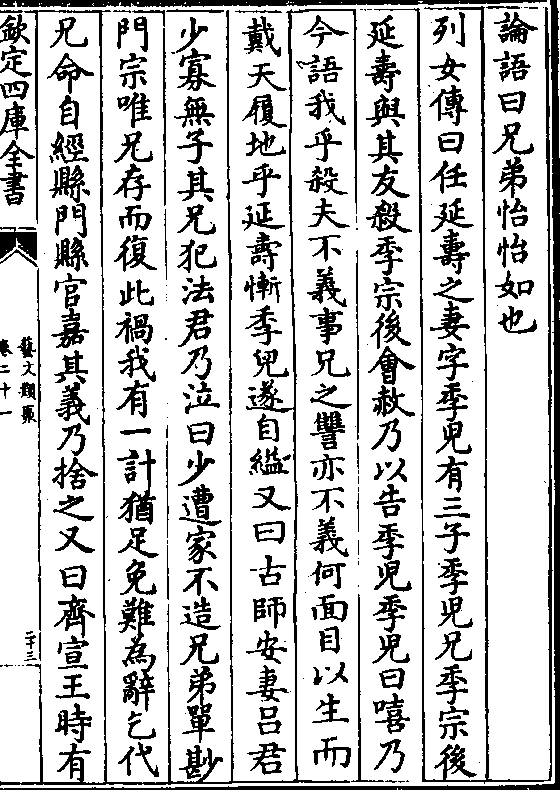 論語曰兄弟怡怡如也
列女傳曰任延壽之妻字季兒有三子季兒兄季宗後
延壽與其友殺季宗後會赦乃以告季兒季兒曰嘻乃
今語我乎殺夫不義事兄之讐亦不義何面目以生而
戴天履地乎延壽慚季兒遂自縊又曰古師安妻吕君
少寡無子其兄犯法君乃泣曰少遭家不造兄弟單尠
門宗唯兄存而復此禍我有一計猶足免難為辭乞代
兄命自經縣門縣官嘉其義乃捨之又曰齊宣王時有
欽定四庫全書
藝文類聚
卷二十一
二十三